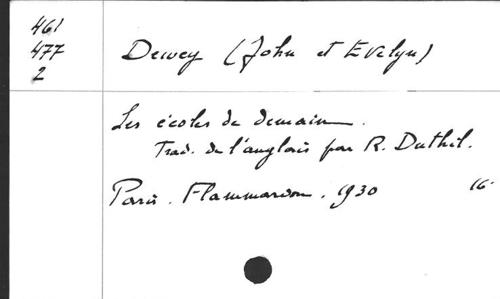 461
477
2
Dewey (John et Evelyn)
Les écoles de demain.
Trad. de l'anglais par R. Duthil.
Paris. Flammarion. 1930 16°